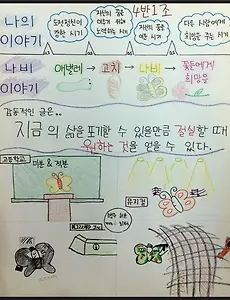 4반 1조
나의
이야기
도전정신이
강한 시기
자신의 꿈을
이루기 위해
노력하는 시기
자신의 꿈을
이룬 시기
다른 사람에게
희망을 주는 시기
나비
이야기
애벌레 → 고치 → 나비 → 꽃들에게
희망을
감동적인 글은..
지금의 삶을 포기할 수 있을만큼 절실할 때
원하는 것을 얻을 수 있다.
고등학교
미분 & 적분
뮤지컬